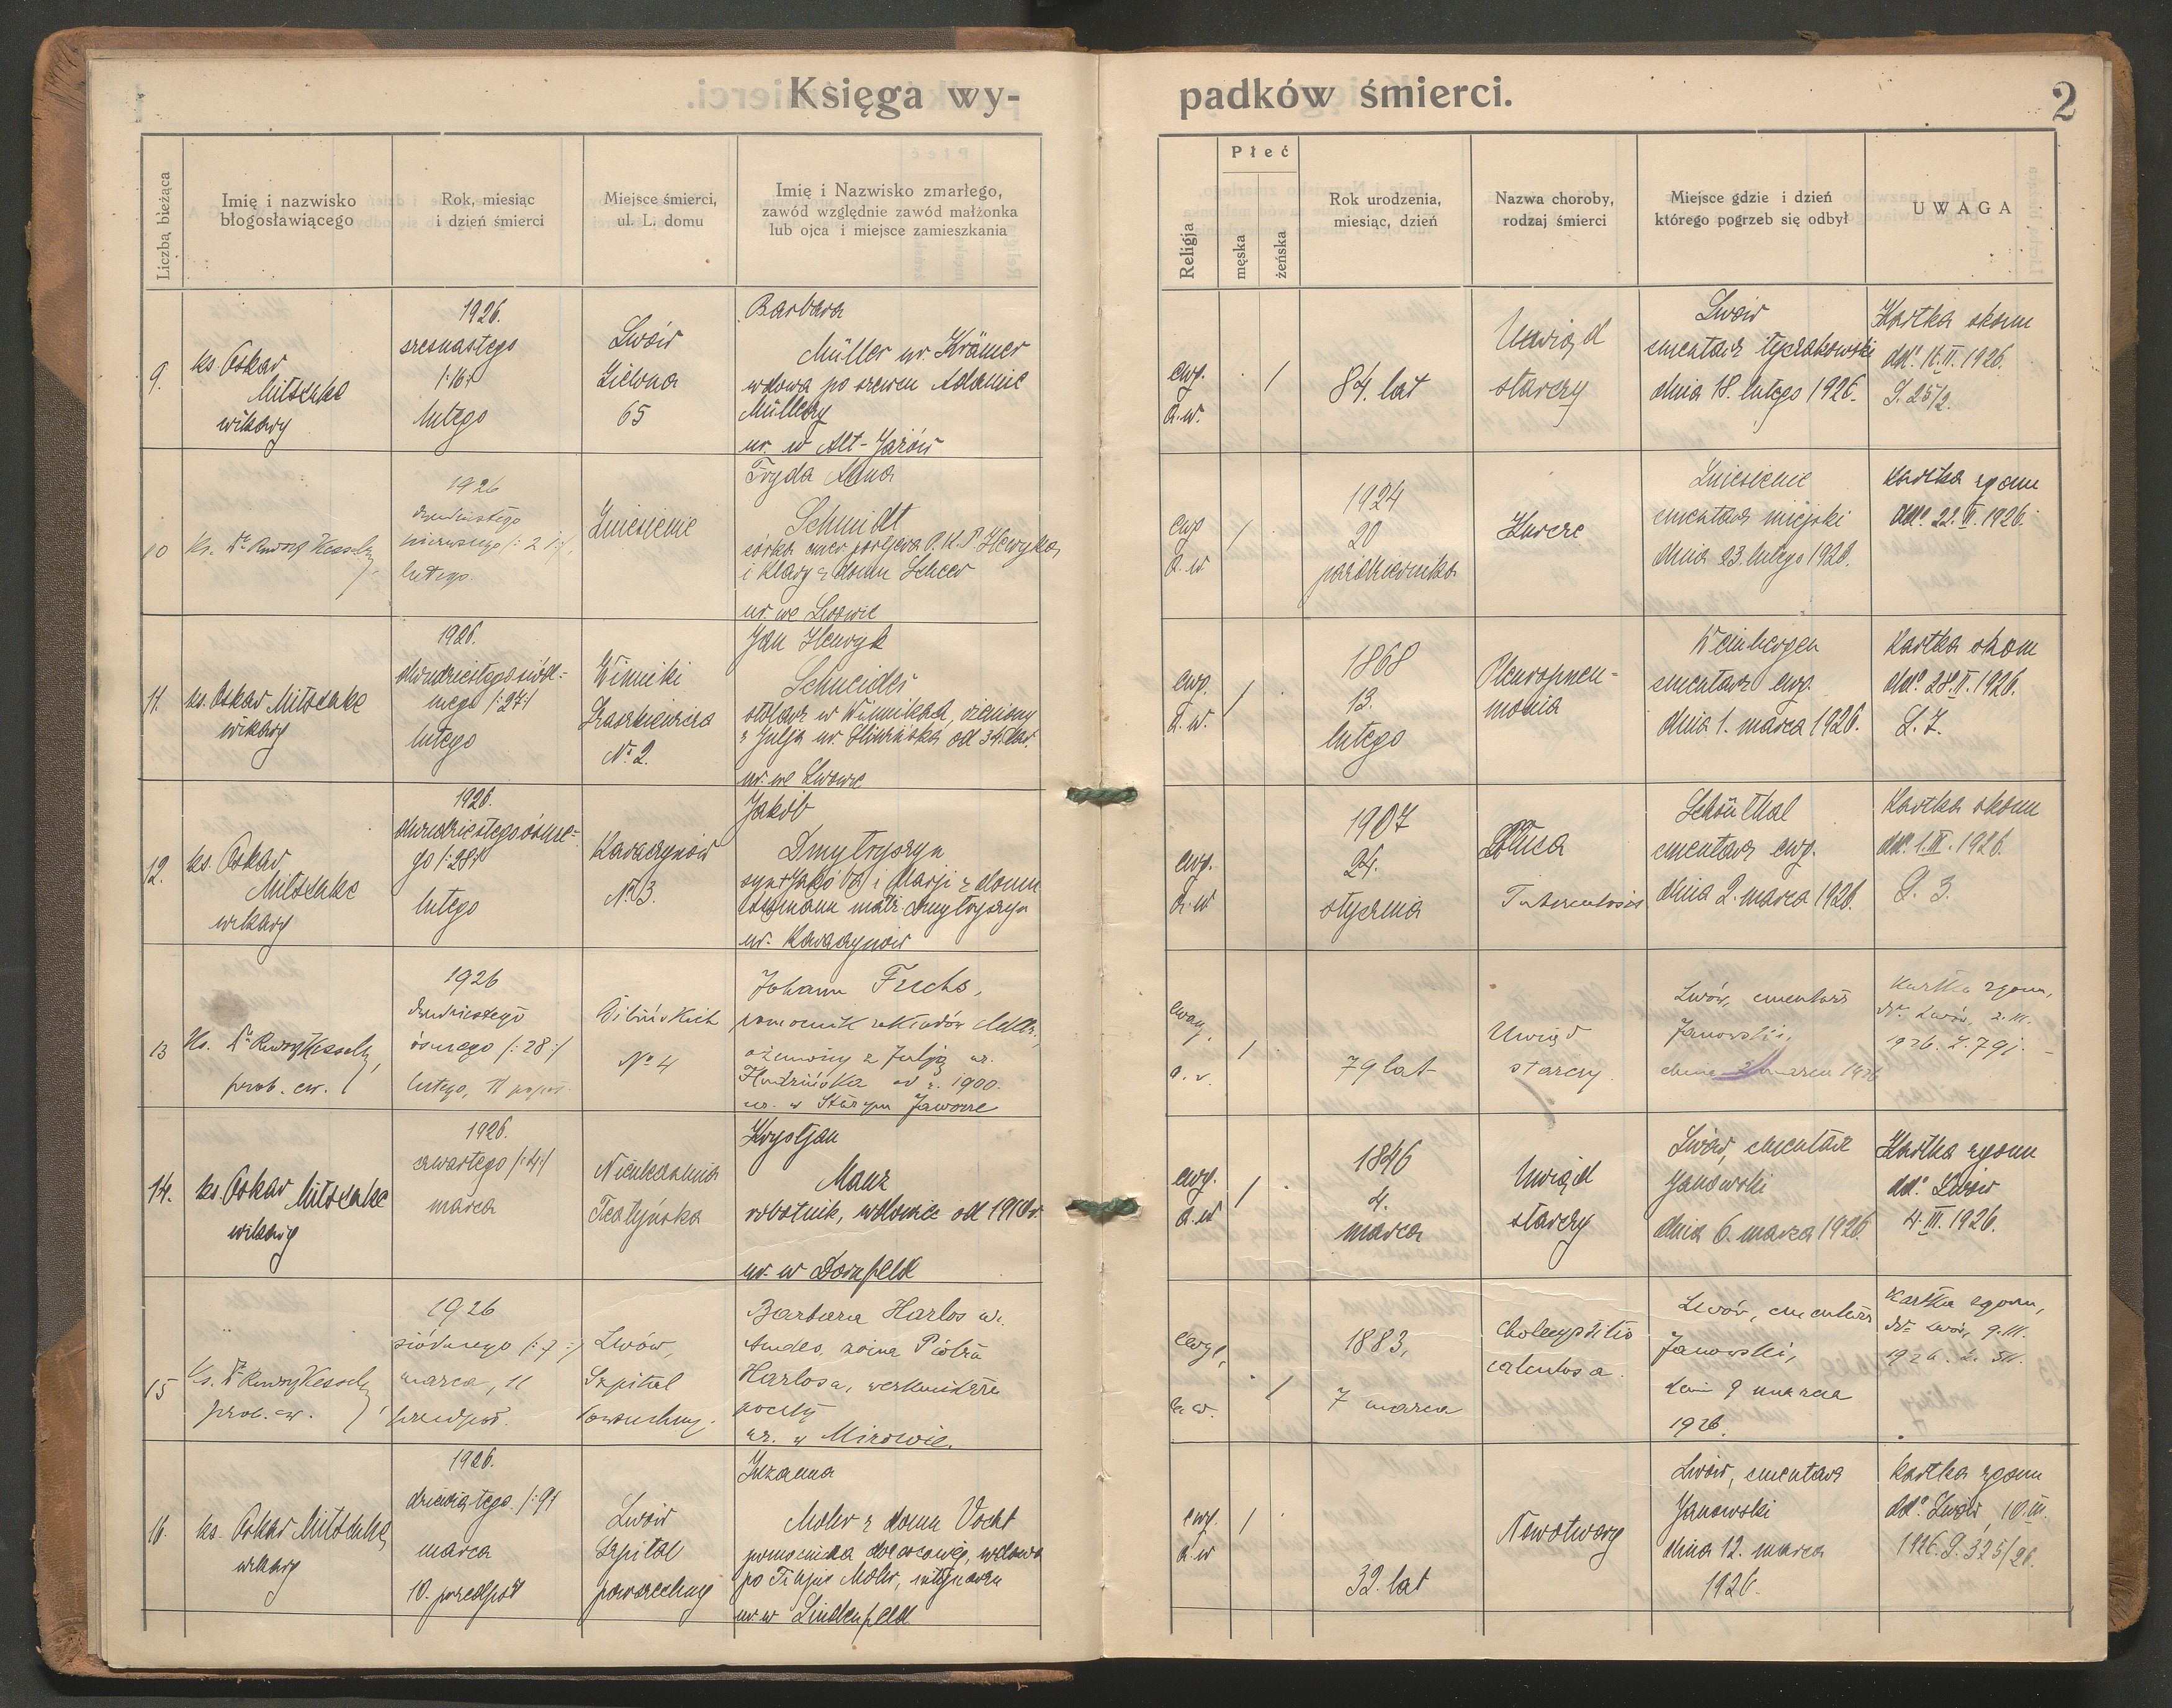 Księga wypadków śmierci.
2
Liczba bieżąca
Imię i nazwisko
błogosławiącego
Rok, miesiąc
i dzień śmierci
Miejsce śmierci,
ul. L. domu
Imię i Nazwisko zmarłego,
zawód względnie zawód małżonka
lub ojca i miejsce zamieszkania
Religja
Płeć
męska
żeńska
Rok urodzenia,
miesiąc, dzień
Nazwa choroby,
rodzaj śmierci
Miejsce gdzie i dzień
którego pogrzeb się odbył
UWAGA
9.
ks. Oskar
Mitschke
wikary
1926.
szesnastego
/:16:/
lutego
Lwów
Zielona
65
Barbara
Müller ur. Krämer
wdowa po szewcu Adamie
Müller
ur. w Alt-Jażów
ewg.
a.w.
/
84. lat
Uwiąd
starczy
Lwów
cmentarz łyczakowski
dnia 18. lutego 1926.
Kartka okom
dd. 16.II.1926.
L.25/2.
10
Ks. Dr Kessel
1926
dwudziestego
pierwszego /:21:/
lutego
Zniesienie
Fryda Anna
Schmidt
córka emer. P.K.P. Henryka
i Klary z domu Scheer
ur. we Lwowie
ewg
a.w.
/
1924
20
października
Kurcze
Zniesienie
cmentarz miejski
dnia 23. lutego 1926.
Kartka zgonu
dd. 22.II.1926.
11.
ks. Oskar Mitschke
wikary
1926.
dwudziestego siód-
mego /:27:/
lutego
Winniki
No. 2.
Jan Henryk
Schneider
stolarz w Winnikach, żeniony
z Julją ur.
ur. we Lwowie
ewg.
a.w.
/
1868
13.
lutego
Pleuropneu-
monia
Weinbergen
cmentarz ewg.
dnia 1. marca 1926.
Kartka okom
dd. 28.II.1926.
L. 7.
12.
ks. Oskar
Mitschke
wikary
1926.
dwudziestego ósme-
go /:28:/
lutego
Karaczynów
No. 3.
Jakób
Dmytryszyn
i Marji z domu
Dmytryszyn
ur. Karaczynów
ewg.
a.w.
1907
24.
stycznia
Tuberculosis
Schönthal
cmentarz ewg.
dnia 2. marca 1926.
Kartka okom
dd. 1.III.1926.
L. 3.
13
Ks. Dr Kessel,
prob. ew.
1926
dwudziestego
ósmego /:28:/
lutego, 11
No 4
Johann Fuchs,
pomocnik
ożeniony z Julją ur.
od r. 1900.
ur. w Starym Jaworze
ewang.
a.w.
/
79 lat
Uwiąd
starczy
Lwów, cmentarz
Janowski,
dnia marca 1926
Kartka zgonu,
Lwów, 2.III.
1926.
14.
ks. Oskar Mitschke
wikary
1926.
czwartego /:4:/
marca
Krystjan
Manz
robotnik, wdowiec od 1910 r.
ur. w Dornfeld
ewg.
a.w.
/
1846
4.
marca
Uwiąd
starczy
Lwów, cmentarz
Janowski
dnia 6. marca 1926.
Kartka zgonu
dd. Lwów
4.III.1926.
15
Ks. Dr Kessel
prob. ew.
1926
siódmego /:7:/
marca, 11
przedpoł.
Lwów,
Szpital
powszechny.
Barbara Harlos ur.
żona Piotra
Harlosa,
poczty
ur. w Mirowie.
ewg.,
a.w.
/
1883,
7 marca
calculosa
Lwów, cmentarz
Janowski,
dnia 9 marca
1926.
Kartka zgonu,
Lwów, 9.III.
1926.
16.
ks. Oskar Mitschke
wikary
1926.
dziewiątego /:9:/
marca
10. przedpoł
Lwów
szpital
powszechny
Zuzanna
Mohr z domu Vocht
wdowa
po Filipie Mohr,
ur. w Lindenfeld
ewg.
a.w
/
32. lat
Nowotwory
Lwów, cmentarz
Janowski
dnia 12. marca
1926.
Kartka zgonu
dd. Lwów, 10.III.
1926. L. 325/26.